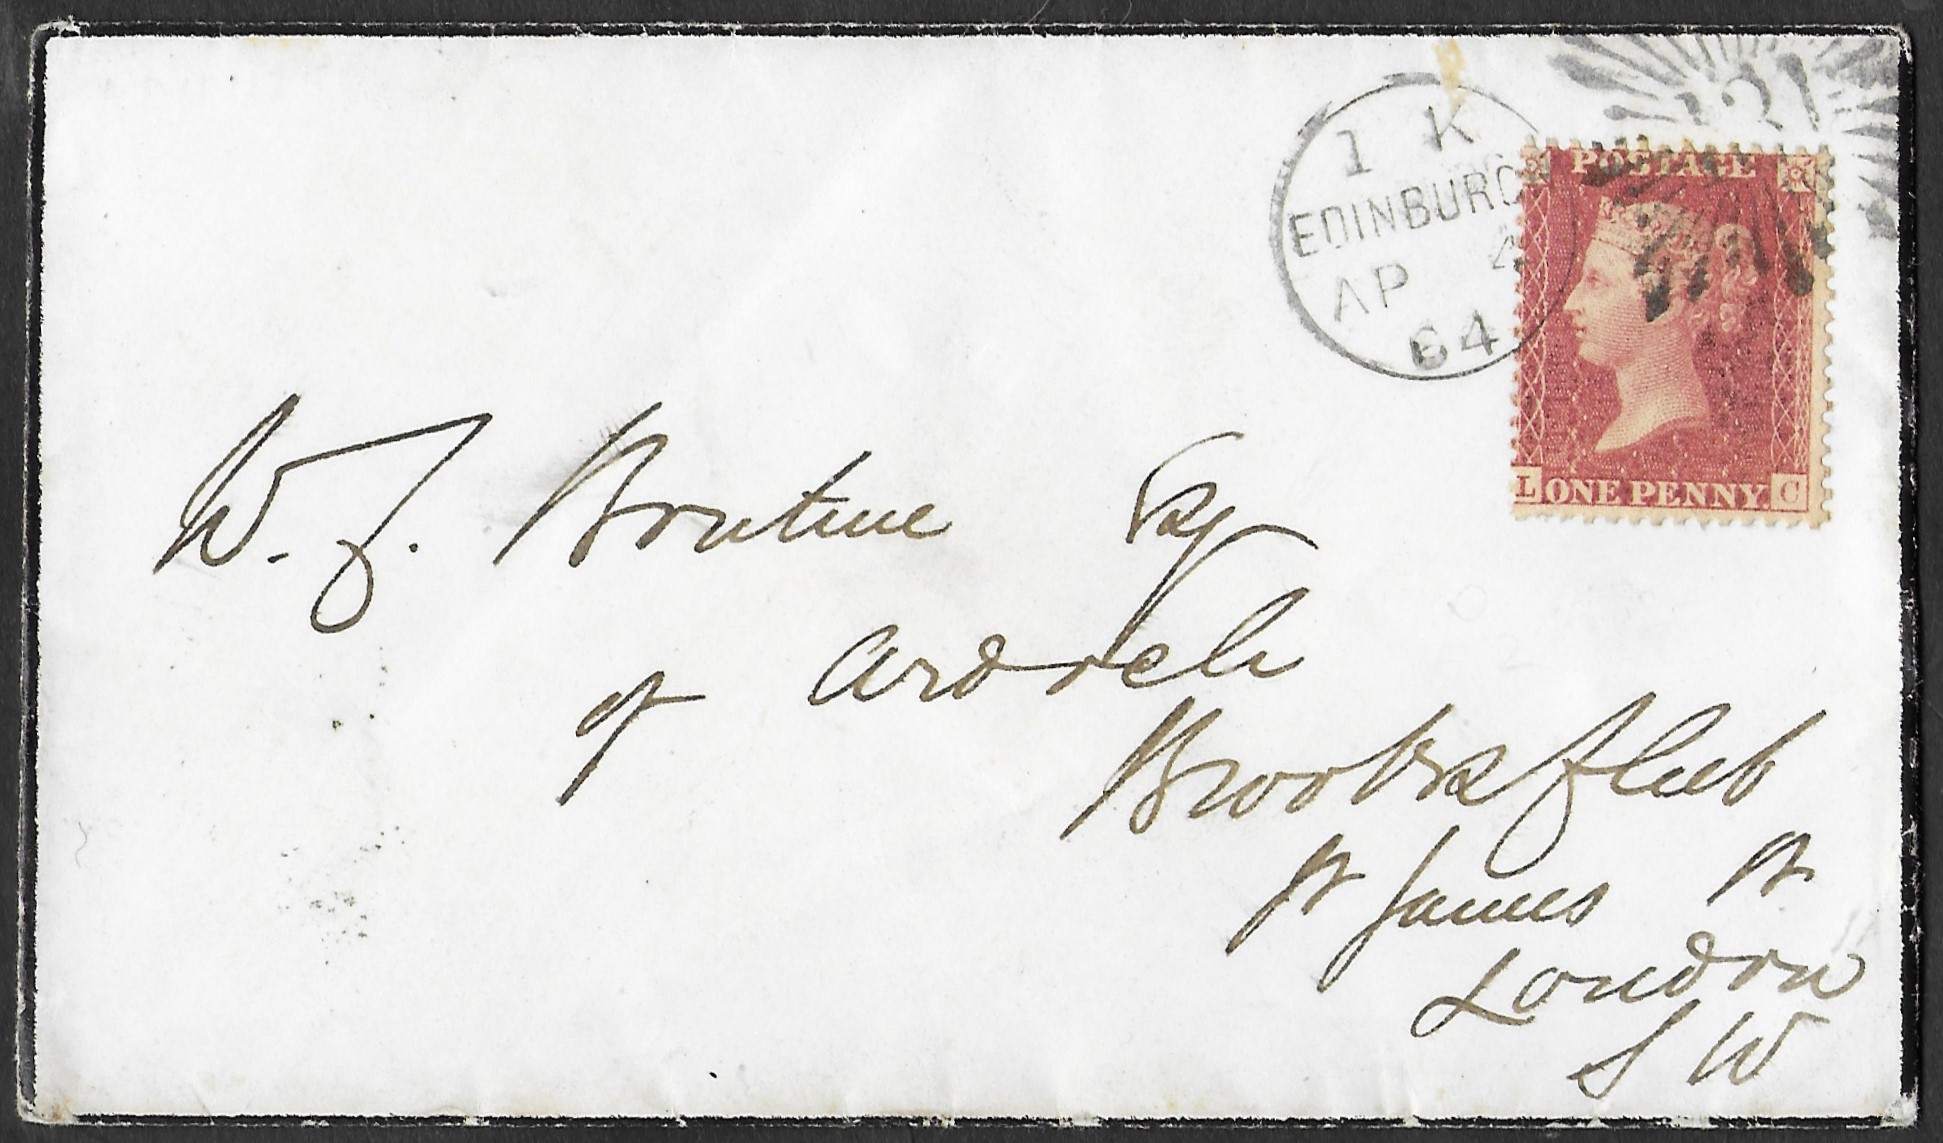 1 K
EDINBURGH
AP 4
64
131
POSTAGE
L ONE PENNY C
W. J. Esq
of Ardoch
Brooks's Club
St James St
London
S W